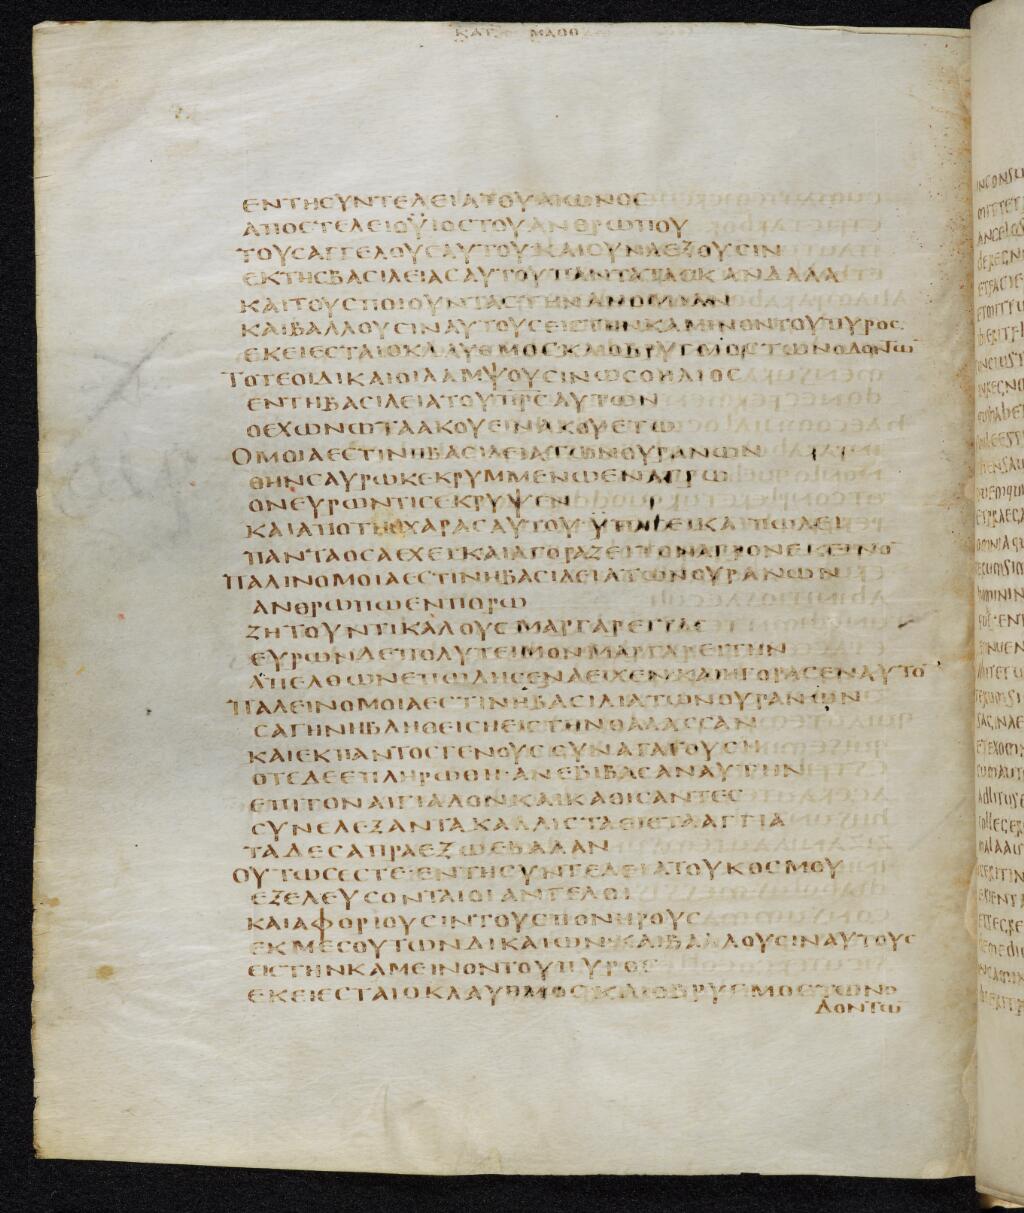 ΚΑΤ ΜΑΘΘ
ΕΝΤΗСΥΝΤΕΛΕΙΑΤΟΥΑΙΩΝΟС
ΑΠΟСΤΕΛΕΙΟΫΙΟСΤΟΥΑΝΘΡΩΠΟΥ
ΤΟΥСΑΓΓΕΛΟΥСΑΥΤΟΥΚΑΙСΥΝΛΕΞΟΥСΙΝ
ΕΚΤΗСΒΑСΙΛΕΙΑСΑΥΤΟΥΠΑΝΤΑΤΑСΚΑΝΔΑΛΑ
ΚΑΙΤΟΥСΠΟΙΟΥΝΤΑСΤΗΝΑΝΟΜΙΑΝ
ΚΑΙΒΑΛΛΟΥСΙΝΑΥΤΟΥСΕΙСΤΗΝΚΑΜΙΝΟΝΤΟΥΠΥΡΟС
ΕΚΕΙΕСΤΑΙΟΚΛΑΥΘΜΟСΚΑΙΟΒΡΥΓΜΟСΤΩΝΟΔΟΝΤΩ
ΤΟΤΕΟΙΔΙΚΑΙΟΙΛΑΜΨΟΥСΙΝΩСΟΗΛΙΟС
ΕΝΤΗΒΑСΙΛΕΙΑΤΟΥΠΡСΑΥΤΩΝ
ΟΕΧΩΝΩΤΑΑΚΟΥΕΙΝΑΚΟΥΕΤΩ
ΟΜΟΙΑΕСΤΙΝΗΒΑСΙΛΕΙΑΤΩΝΟΥΡΑΝΩΝ
ΘΗΝСΑΥΡΩΚΕΚΡΥΜΜΕΝΩΕΝΑΓΡΩ
ΟΝΕΥΡΩΝΤΙСΕΚΡΥΨΕΝ
ΚΑΙΑΠΟΤΗСΧΑΡΑСΑΥΤΟΥΫΠΑΓΕΙΚΑΙΠΩΛΕΙ
ΠΑΝΤΑΟСΑΕΧΕΙΚΑΙΑΓΟΡΑΖΕΙΤΟΝΑΓΡΟΝΕΚΕΙΝΟ
ΠΑΛΙΝΟΜΟΙΑΕСΤΙΝΗΒΑСΙΛΕΙΑΤΩΝΟΥΡΑΝΩΝ
ΑΝΘΡΩΠΩΕΝΠΟΡΩ
ΖΗΤΟΥΝΤΙΚΑΛΟΥСΜΑΡΓΑΡΕΙΤΑС
ΕΥΡΩΝΔΕΠΟΛΥΤΕΙΜΟΝΜΑΡΓΑΡΕΙΤΗΝ
ΑΠΕΛΘΩΝΕΠΩΛΗСΕΝΑΕΙΧΕΝΚΑΙΗΓΟΡΑСΕΝΑΥΤΟ
ΠΑΛΕΙΝΟΜΟΙΑΕСΤΙΝΗΒΑСΙΛΙΑΤΩΝΟΥΡΑΝΩΝ
СΑΓΗΝΗΒΛΗΘΕΙСΗΕΙСΤΗΝΘΑΛΑССΑΝ
ΚΑΙΕΚΠΑΝΤΟСΓΕΝΟΥССΥΝΑΓΑΓΟΥСΗ
ΟΤΕΔΕΕΠΛΗΡΩΘΗ·ΑΝΕΒΙΒΑСΑΝΑΥΤΗΝ
ΕΠΙΤΟΝΑΙΓΙΑΛΟΝΚΑΙΚΑΘΙСΑΝΤΕС
СΥΝΕΛΕΞΑΝΤΑΚΑΛΛΙСΤΑΕΙСΤΑΑΓΓΙΑ
ΤΑΔΕСΑΠΡΑΕΞΩΕΒΑΛΑΝ
ΟΥΤΩСΕСΤΕ·ΕΝΤΗСΥΝΤΕΛΕΙΑΤΟΥΚΟСΜΟΥ
ΕΞΕΛΕΥСΟΝΤΑΙΟΙΑΝΓΕΛΟΙ
ΚΑΙΑΦΟΡΙΟΥСΙΝΤΟΥСΠΟΝΗΡΟΥС
ΕΚΜΕСΟΥΤΩΝΔΙΚΑΙΩΝ·ΚΑΙΒΑΛΛΟΥСΙΝΑΥΤΟΥС
ΕΙСΤΗΝΚΑΜΕΙΝΟΝΤΟΥΠΥΡΟС
ΕΚΕΙΕСΤΑΙΟΚΛΑΥΘΜΟСΚΑΙΟΒΡΥΓΜΟСΤΩΝΟ
ΔΟΝΤΩ